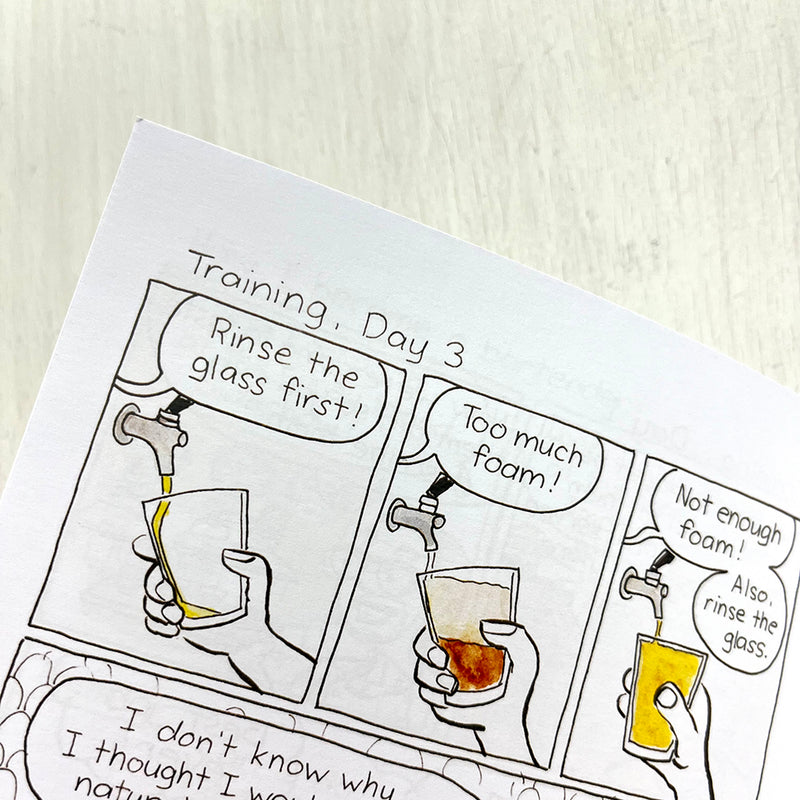 Training, Day 3
Rinse the
glass first!
Too much
foam!
Not enough
foam!
Also,
rinse the
glass.
I don't know why
I thought I